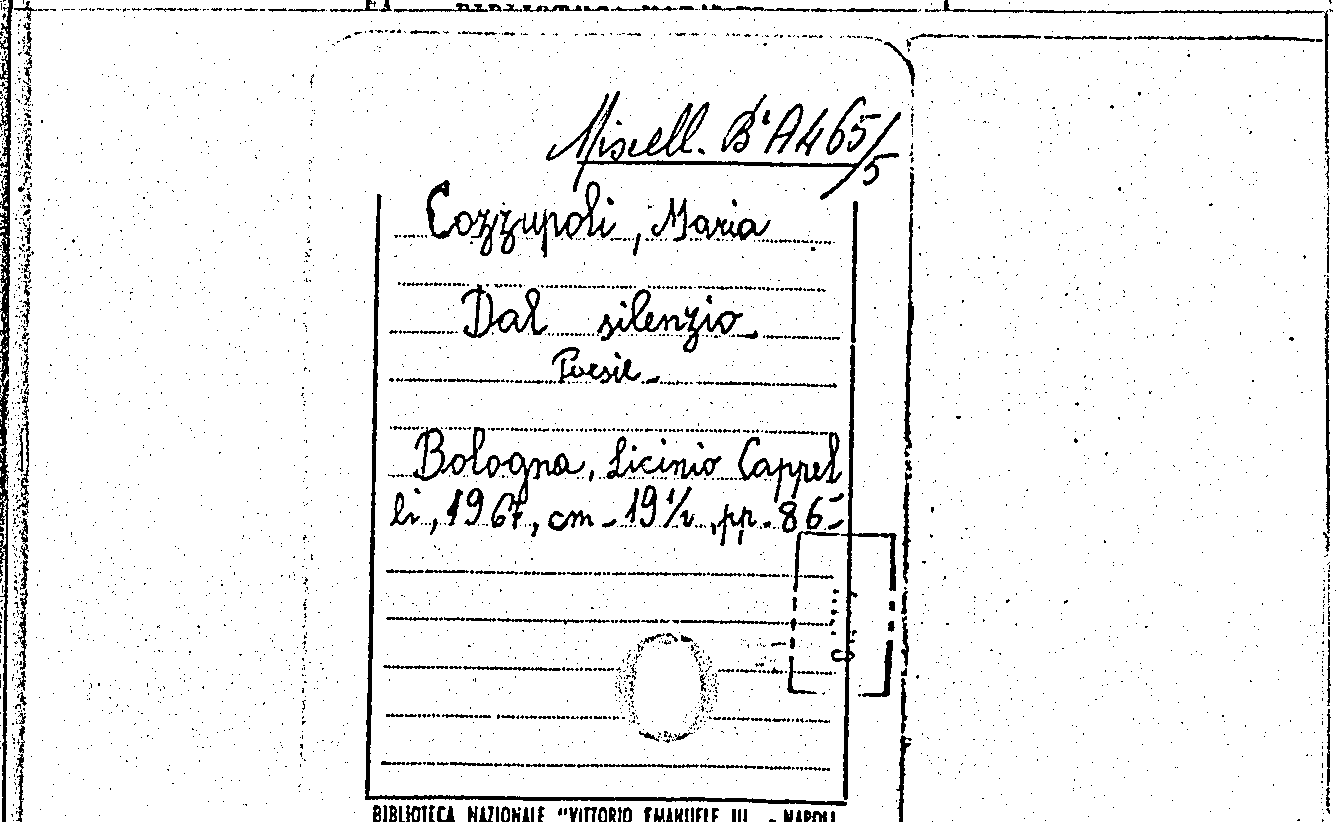 Miscell. B A465/5
Cozzupoli, Maria
Dal silenzio
Poesie
Bologna, Licinio Cappel
li, 1967, cm. 19 1/2, pp. 86
BIBLIOTECA NAZIONALE "VITTORIO EMANUELE III - NAPOLI